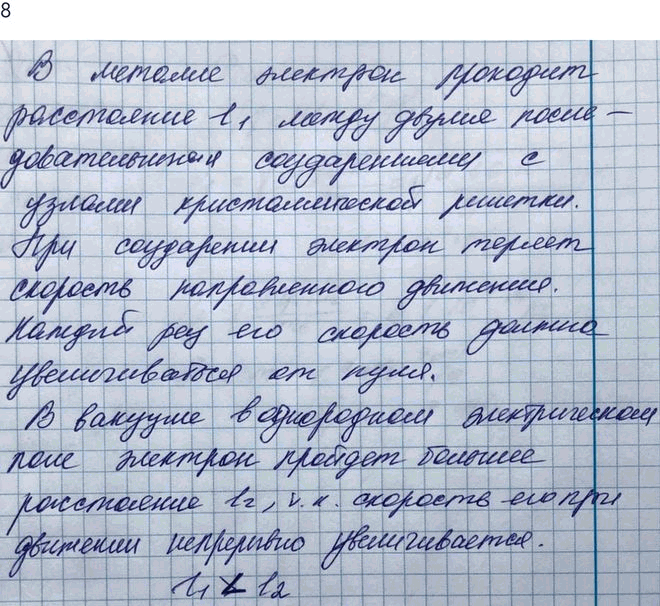 8
В металле электрон проходит
расстояние l1 между двумя после-
довательными соударениями с
узлами кристаллической решетки.
При соударении электрон теряет
скорость направленного движения.
Каждый раз его скорость должна
увеличиваться от нуля.
В вакууме в однородном электрическом
поле электрон пройдет большее
расстояние l2, т.к. скорость его при
движении непрерывно увеличивается.
l1 < l2